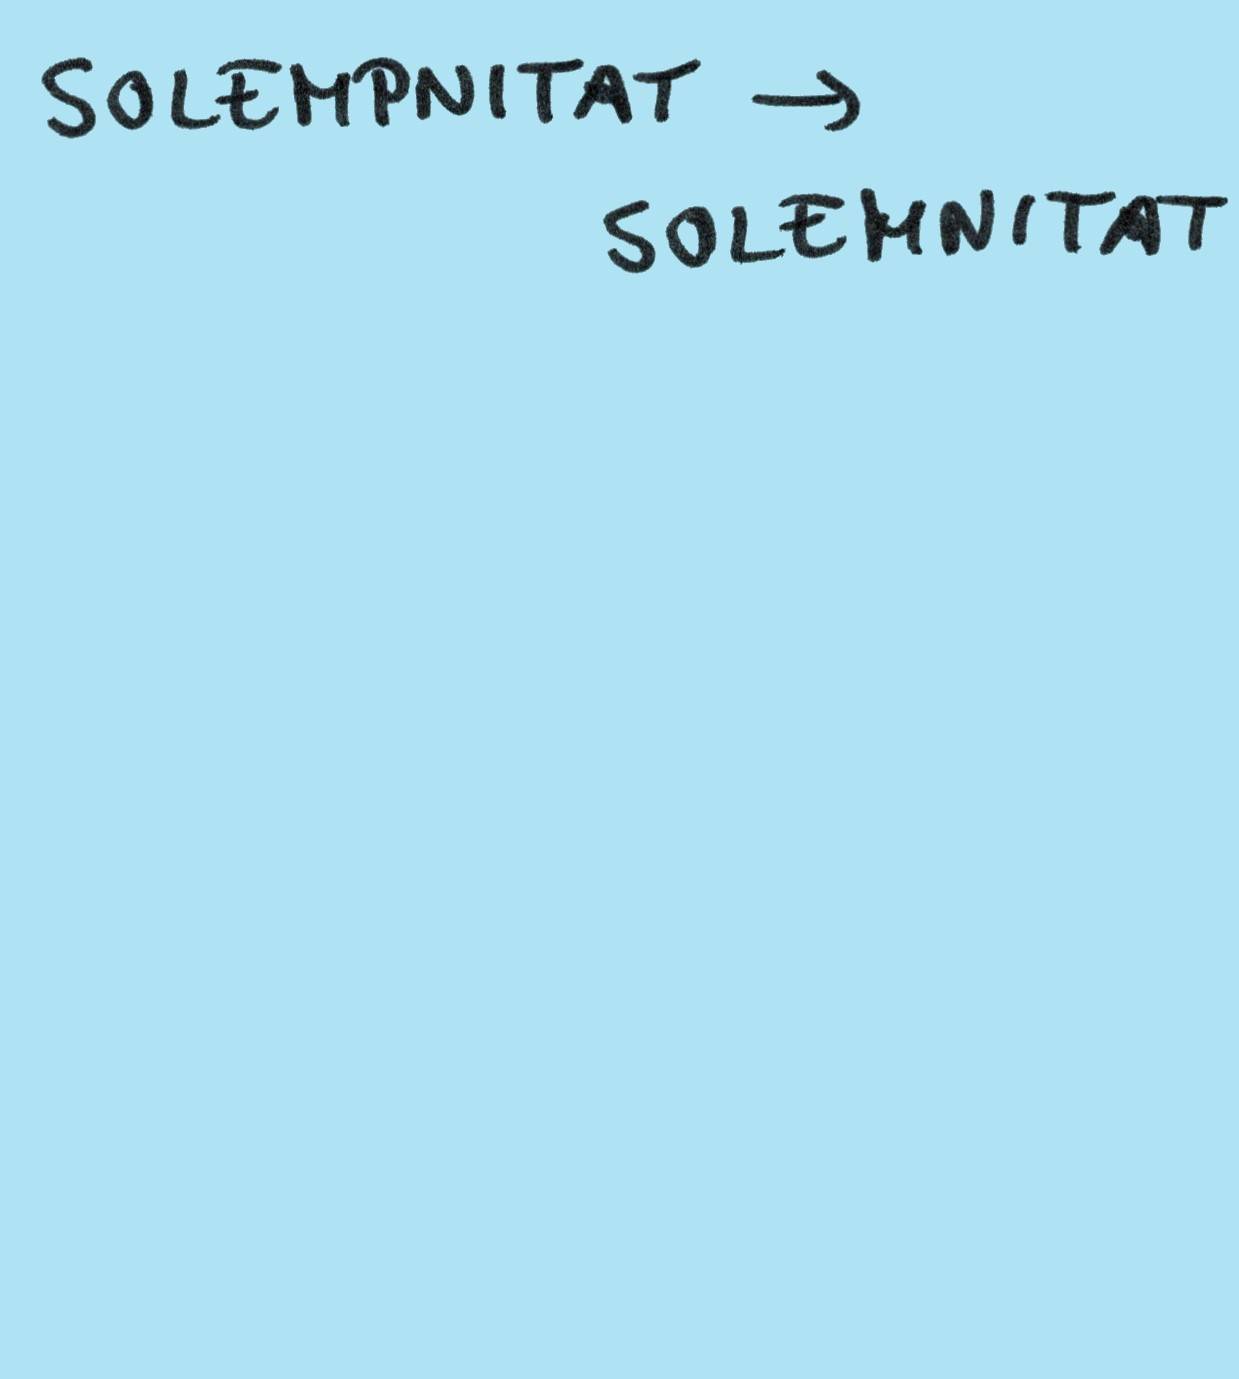 SOLEMPNITAT →
SOLEMNITAT